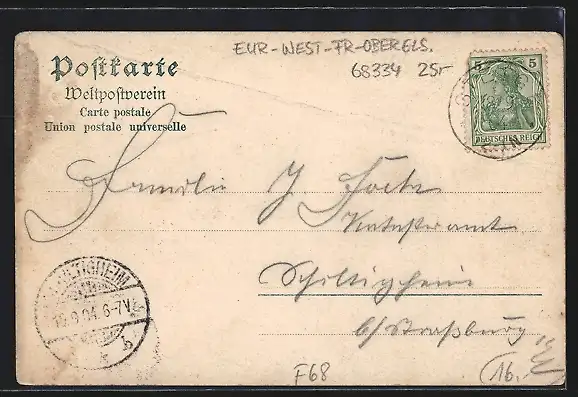 EUR-WEST-FR-OBERELS.
68334 25,-
Postkarte
Weltpostverein
Carte postale
Union postale universelle
5 5
DEUTSCHES REICH
Familie J
Katasteramt
Schiltigheim
b/Straßburg
SCHILTIGHEIM
19.8.04.6-7V.
b
F68
16.